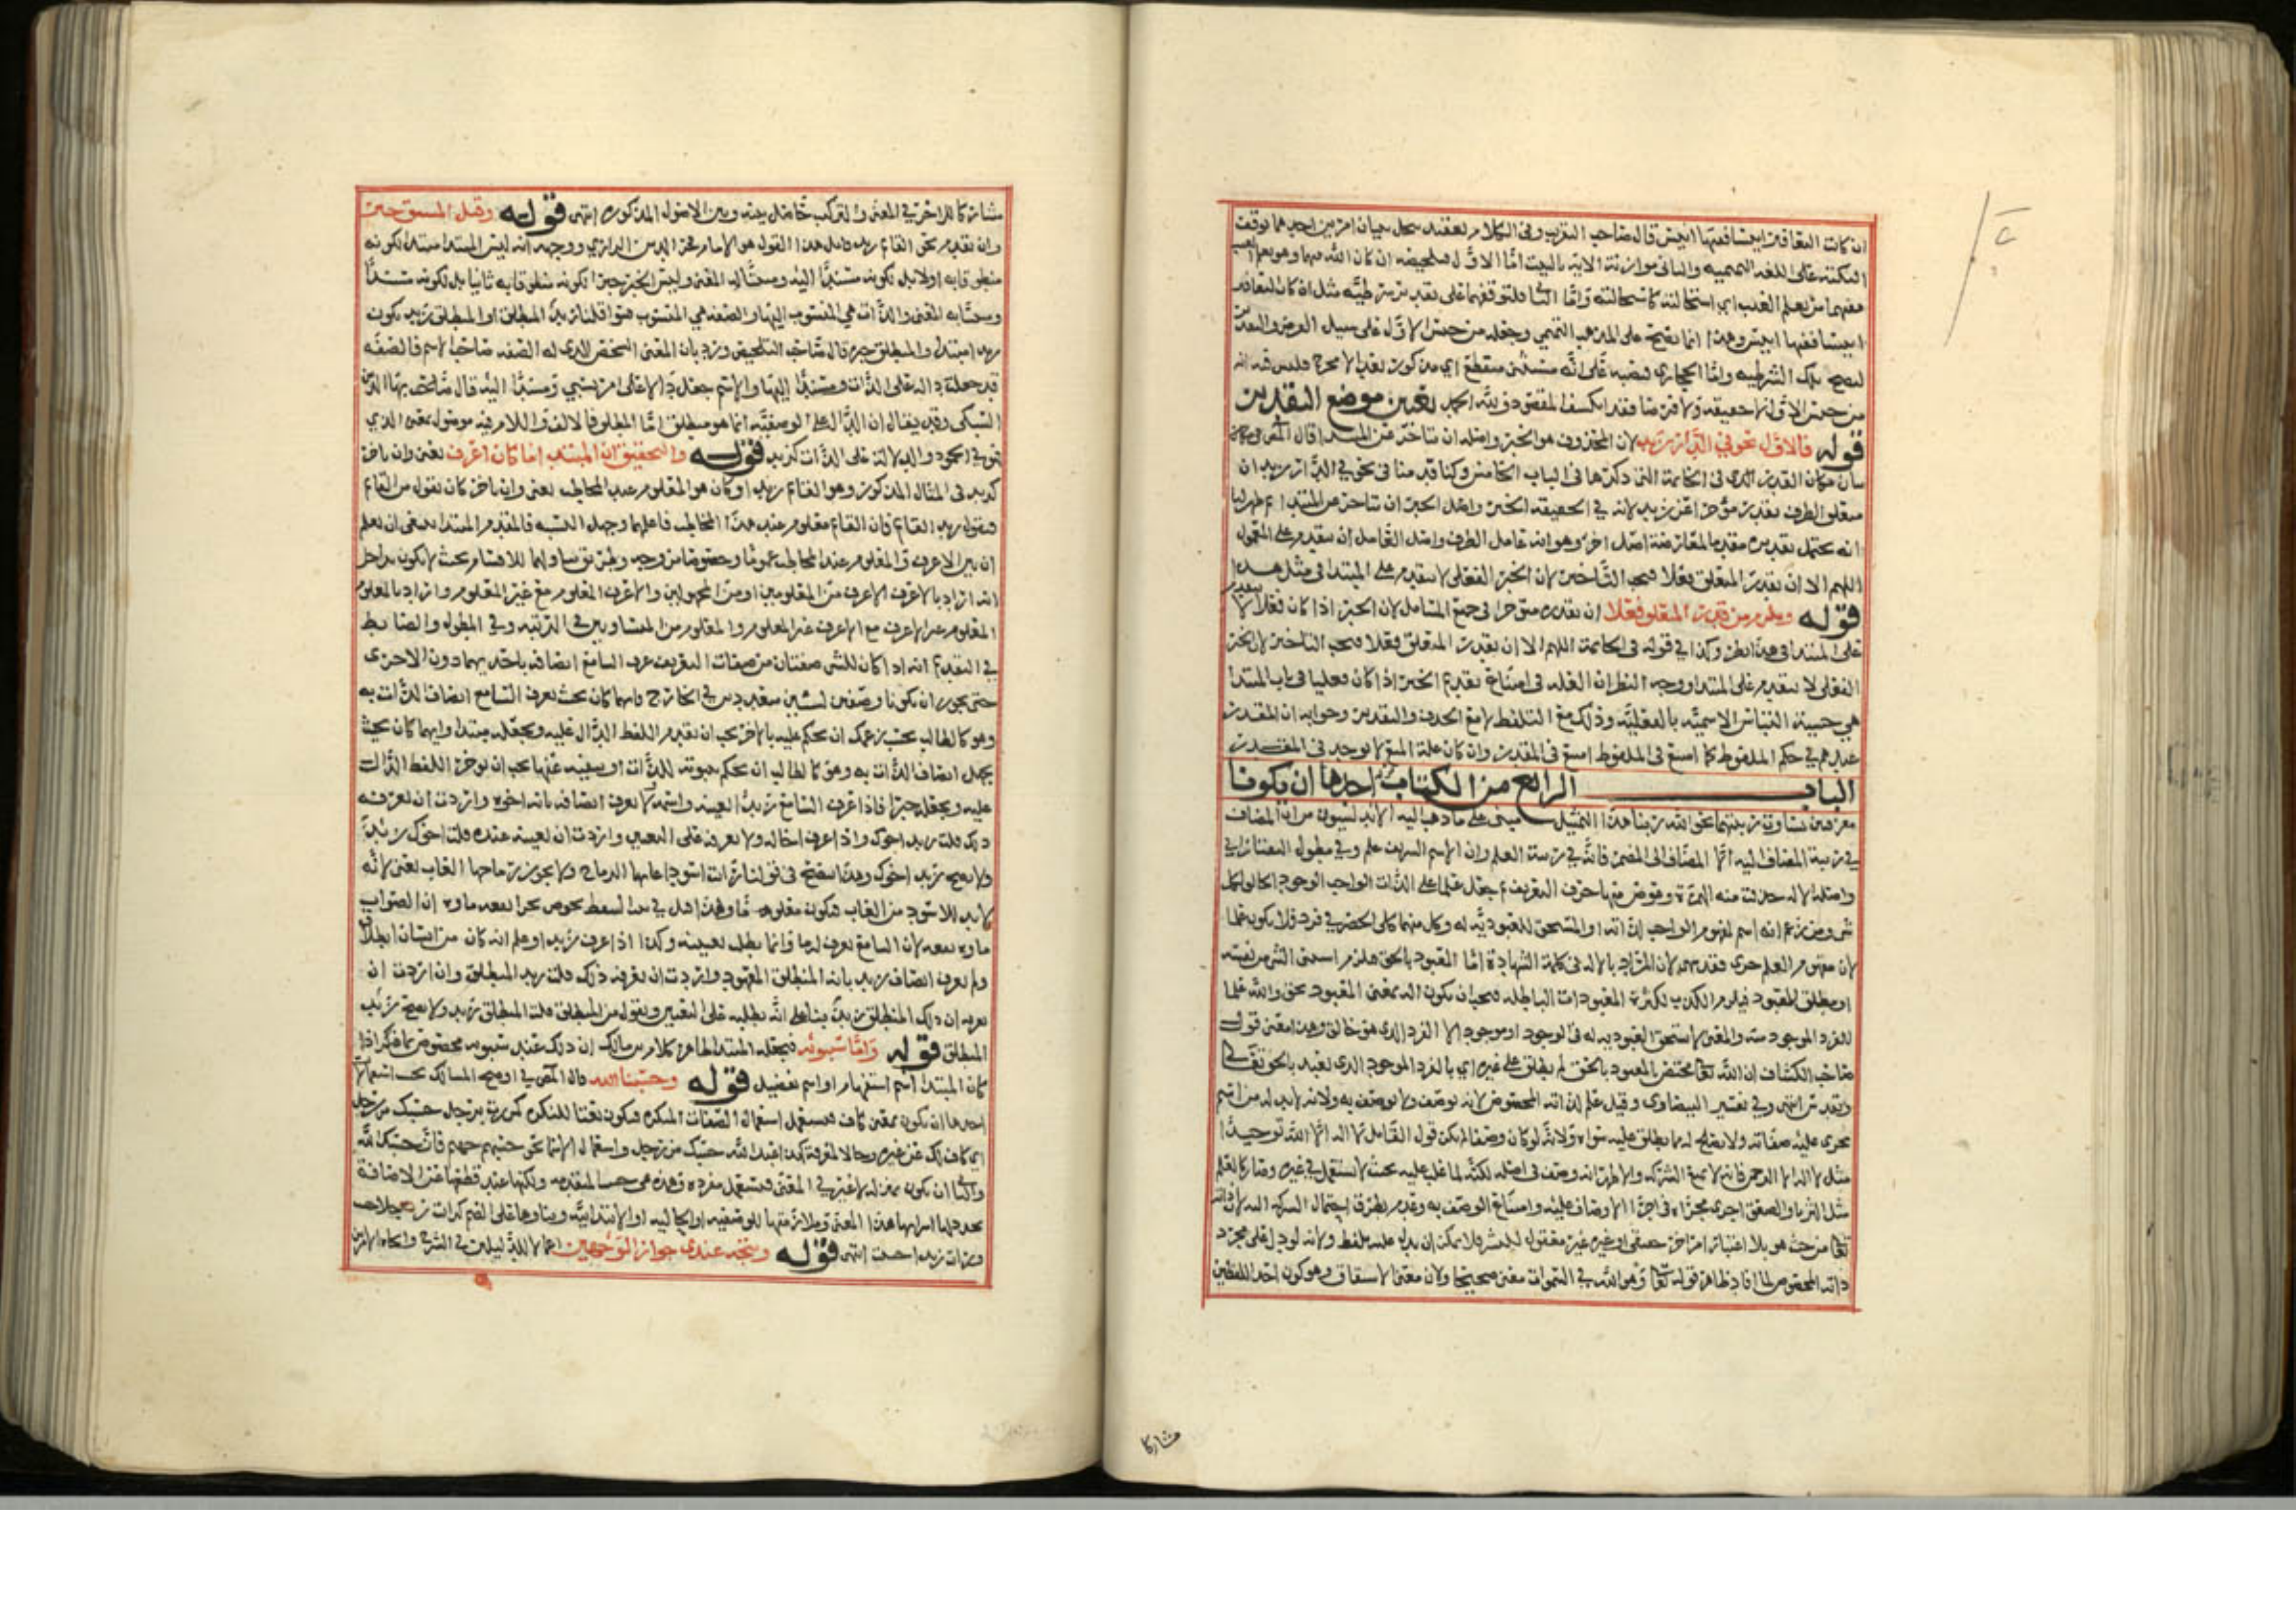 ان كانت فابيتها ابيض قال صاحب التقريب وفى الكلام تعقيد يحل ببيان امرين احدهما توقف
النكتة على اللغة التميمية والثانى موازنة الاية بالبيت اما الاول فتلخيصه ان كان الله منهما وهو يعلم الغيب
معنهما من يعلم الغيب اى استحالته كاستحالته واما الثا فلتوقفهما على تقدير شرطية مثل ان كان اليعافير
انيسا ففيها انيس وهذا انما يصح على المذهب التميمي وجعله من جنس الاول على سبيل الفرض والتقدير
لتصح تلك الشرطية واما الحجازى فنصبه على انه مستثنى منقطع اى مذكور بعد الا مخرج فليس فيه انه
من جنس الاول لا حقيقة ولا فرضا فقد انكشف المقصود فى لله الحمد تعيين موضع التقدير
قوله فالاول نحو فى الدار زيد لان المحذوف هو الخبر واصله ان يتاخر عن المبتدا قال المص
بيان مكان القدير الذى فى الخاتمة التى ذكرها فى الباب الخامس وكنا قدمنا فى نحو فى الدار زيد ان
متعلق الظرف يقدر مؤخرا عن زيد لانه فى الحقيقة الخبر واصل الخبر ان يتاخر عن المبتدا ثم ظهر لنا
انه يحتمل تقديره مقدما لمعارضة اصل اخر وهو انه عامل الظرف واصل العامل ان يتقدم على المعمول
اللهم الا ان يقدر المتعلق فعلا فيجب التاخير لان الخبر الفعلى لا يتقدم على المبتدا فى مثل هذا
قوله ويلزم من قدر المتعلق فعلا ان يقدره مؤخرا فى جميع المسائل لان الخبر اذا كان فعلا لا يتقدم
على المبتدا فى هذا نظر وكذا فى قوله فى الخاتمة اللهم الا ان يقدر المتعلق فعلا فيجب التاخير لان الخبر
الفعلى لا يتقدم على المبتدا ووجه النظر ان العلة فى امتناع تقديم الخبر اذا كان فعليا فى باب المبتدا
هى خشية التباس الاسمية بالفعلية وذلك مع التلفظ لا مع الحذف والتقدير وجوابه ان المقدر
عندهم فى حكم الملفوظ كما امتنع فى الملفوظ امتنع فى المقدر وان كان علة المنع لا توجد فى المقدر
الباب الرابع من الكتاب احدها ان يكونا
معرفتين تساوت رتبتهما نحو الله ربنا هذا التمثيل مبنى على ما ذهب اليه الاندلسيون من ان المضاف
فى رتبة المضاف اليه الا المضاف الى المضمر فانه فى رتبة العلم وان الاسم الشريف علم وفى مطول التفتازانى
واصله الاله حذفت منه الهمزة وعوض منها حرف التعريف ثم جعل علما على الذات الواجب الوجود الخالق لكل
شى ومن زعم انه اسم لمفهوم الواجب لذاته او المستحق للعبودية له وكل منهما كلى انحصر فى فرد فلا يكون علما
لان مفهوم العلم جزى فقد سهى لان المراد بالاله فى كلمة الشهادة اما المعبود بالحق فيلزم استثنى الشى من نفسه
او مطلق المعبود فيلزم الكذب لكثرة المعبودات الباطلة فيجب ان يكون اله بمعنى المعبود بحق والله علما
للفرد الموجود منه والمعنى لا مستحق للعبودية له فى الوجود او موجود الا الفرد الذى هو خالق وهذا معنى قول
صاحب الكشاف ان الله تعا مختص بالمعبود بالحق لم يطلق على غيره اى بالفرد الموجود الذى يعبد بالحق تعالى
وتقدس انتهى وفى تفسير البيضاوى وقيل علم لذاته المخصوص لانه يوصف ولا يوصف به ولانه لا بد له من اسم
تجرى عليه صفاته ولا يصلح له مما يطلق عليه سواه ولانه لو كان وصفا لم يكن قول القايل لا اله الا الله توحيدا
مثل لا اله الا الرحمن فانه لا يمنع الشركة والاظهر انه وصف فى اصله لكنه لما غلب عليه بحيث لا يستعمل فى غيره وصار كالعلم
مثل الثريا والصعق اجرى مجراه فى اجرا الاوصاف عليه وامتناع الوصف به وعدم تطرق احتمال الشركة اليه لان ذاته
تعا من حيث هو بلا اعتبار امر اخر حقيقى او غيره غير معقول للبشر فلا يمكن ان يدل عليه بلفظ ولانه لو دل على مجرد
ذاته المخصوص لما افاد ظاهر قوله تعا وهو الله فى السموات معنى صحيحا ولان معنى الاشتقاق وهو كون احد اللفظين
مشاركا
مشاركا للاخر فى المعنى والتركيب حاصل بينه وبين الاصول المذكورة انتهى قوله وقيل المشتق خبر
وان تقدم نحو القائم زيد قايل هذا القول هو الامام فخر الدين الرازي ووجهه انه ليس المبتدا مبتدا لكونه
منطوقا به اولا بل لكونه مسندا اليه ومثبتا له المعنى وليس الخبر خبرا لكونه منطوقا به ثانيا بل لكونه مسندا
ومثبتا به المعنى والذات هى المنسوب اليها والصفة هى المنسوب سوا قلنا زيد المنطلق او المنطلق زيد يكون
زيد مبتدا والمنطلق خبره قال صاحب التلخيص ورد بان المعنى الشخص الذى له الصفة صاحب الاسم فالصفة
قد جعلت دالة على الذات ومسندا اليها والاسم جعل دالا على امر نسبي ومسندا اليه قال شارحه بها الدين
السبكى وقد يقال ان الدال على الوصفية انما هو منطلق اما المنطلق فالالف واللام فيه موصول بمعنى الذي
فهو فى الجمود والدلالة على الذات كزيد قوله والتحقيق ان المبتدا ما كان اعرف يعنى وان تاخر
كزيد فى المثال المذكور وهو القائم زيد او كان هو المعلوم عند المخاطب يعنى وان تاخر كان يقول من القائم
فيقول زيد القائم فان القائم معلوم عند هذا المخاطب فاعلهما وجهل النسبة فالمقدم المبتدا ينبغى ان يعلم
ان بين الاعرف والمعلوم عند المخاطب عموما وخصوصا من وجه
انه اراد بالاعرف الاعرف من المعلومين او من المجهولين والاعرف المعلوم مع غير المعلوم واراد بالمعلوم
المعلوم غير الاعرف مع الاعرف غير المعلوم والمعلوم من المتساويين فى الرتبة وفى المطول والضابط
فى التقديم انه اذا كان للشى صفتان من صفات التعريف عرف السامع اتصافه باحديهما دون الاخرى
حتى يجوز ان تكونا وصفين لشيئين متعددين فى الخارج فايهما كان بحيث يعرف السامع اتصاف الذات به
وهو كالطالب بحسب زعمك ان تحكم عليه بالاخر يجب ان تقدم اللفظ الدال عليه وتجعله مبتدا وايهما كان بحيث
يجهل اتصاف الذات به وهو كالطالب ان تحكم بثبوته للذات او بنفيه عنها يجب ان توخر اللفظ الدال
عليه وتجعله خبرا فاذا عرف السامع زيدا بعينه واسمه ولا يعرف اتصافه بانه اخوه واردت ان تعرفه
ذلك قلت زيد اخوك واذا عرف اخا له ولا يعرفه على التعيين واردت ان تعينه عنده قلت اخوك زيد
ولا يصح زيد اخوك وهذا يتضح فى قولنا رايت اسودا غابها الرماح ولا يجوز رماحها الغاب يعنى لانه
لا بد للاسود من الغاب فيكون معلوما
لان السامع يعرف له ما وانما يطلب تعيينه وكذا اذا عرف زيدا وعلم انه كان من انسان انطلاق
ولم يعرف اتصاف زيد بانه المنطلق المعهود واردت ان تعرفه ذلك قلت زيد المنطلق وان اردت ان
تعرفه ان ذلك المنطلق زيد بناء على انه يطلبه على التعيين ويقول من المنطلق قلت المنطلق زيد ولا يصح زيد
المنطلق قوله واما سيبويه فيجعله المبتدا ظاهر كلام بن مالك ان ذلك عند سيبويه مخصوص بما ذكر اذا
كان المبتدا اسم استفهام او اسم تفضيل قوله وحسبنا الله قال المص فى اوضح المسالك
احدها ان يكون بمعنى كاف فيستعمل استعمال الصفات النكرة فيكون نعتا للنكرة كمررت برجل حسبك من رجل
اى كاف لك عن غيره وحالا لمعرفة كهذا عبد الله حسبك من رجل واستعمال الاسما نحو حسبهم جهنم فان حسبك الله
والثا ان يكون بمنزلة لا غير فى المعنى فيستعمل مفردة وهذه هى حسب المتقدمة ولكنها عند قطعها عن الاضافة
تجدد لها اشرابها هذا المعنى وملازمتها للوصفية او الحالية او الابتدائية وبناوها على الضم كرايت رجلا حسب
ورايت زيدا حسب انتهى قوله ويتجه عندى جواز الوجهين اعمالا للدليلين